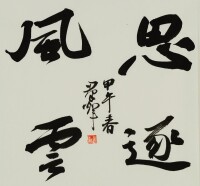 思逐
風雲
甲午春